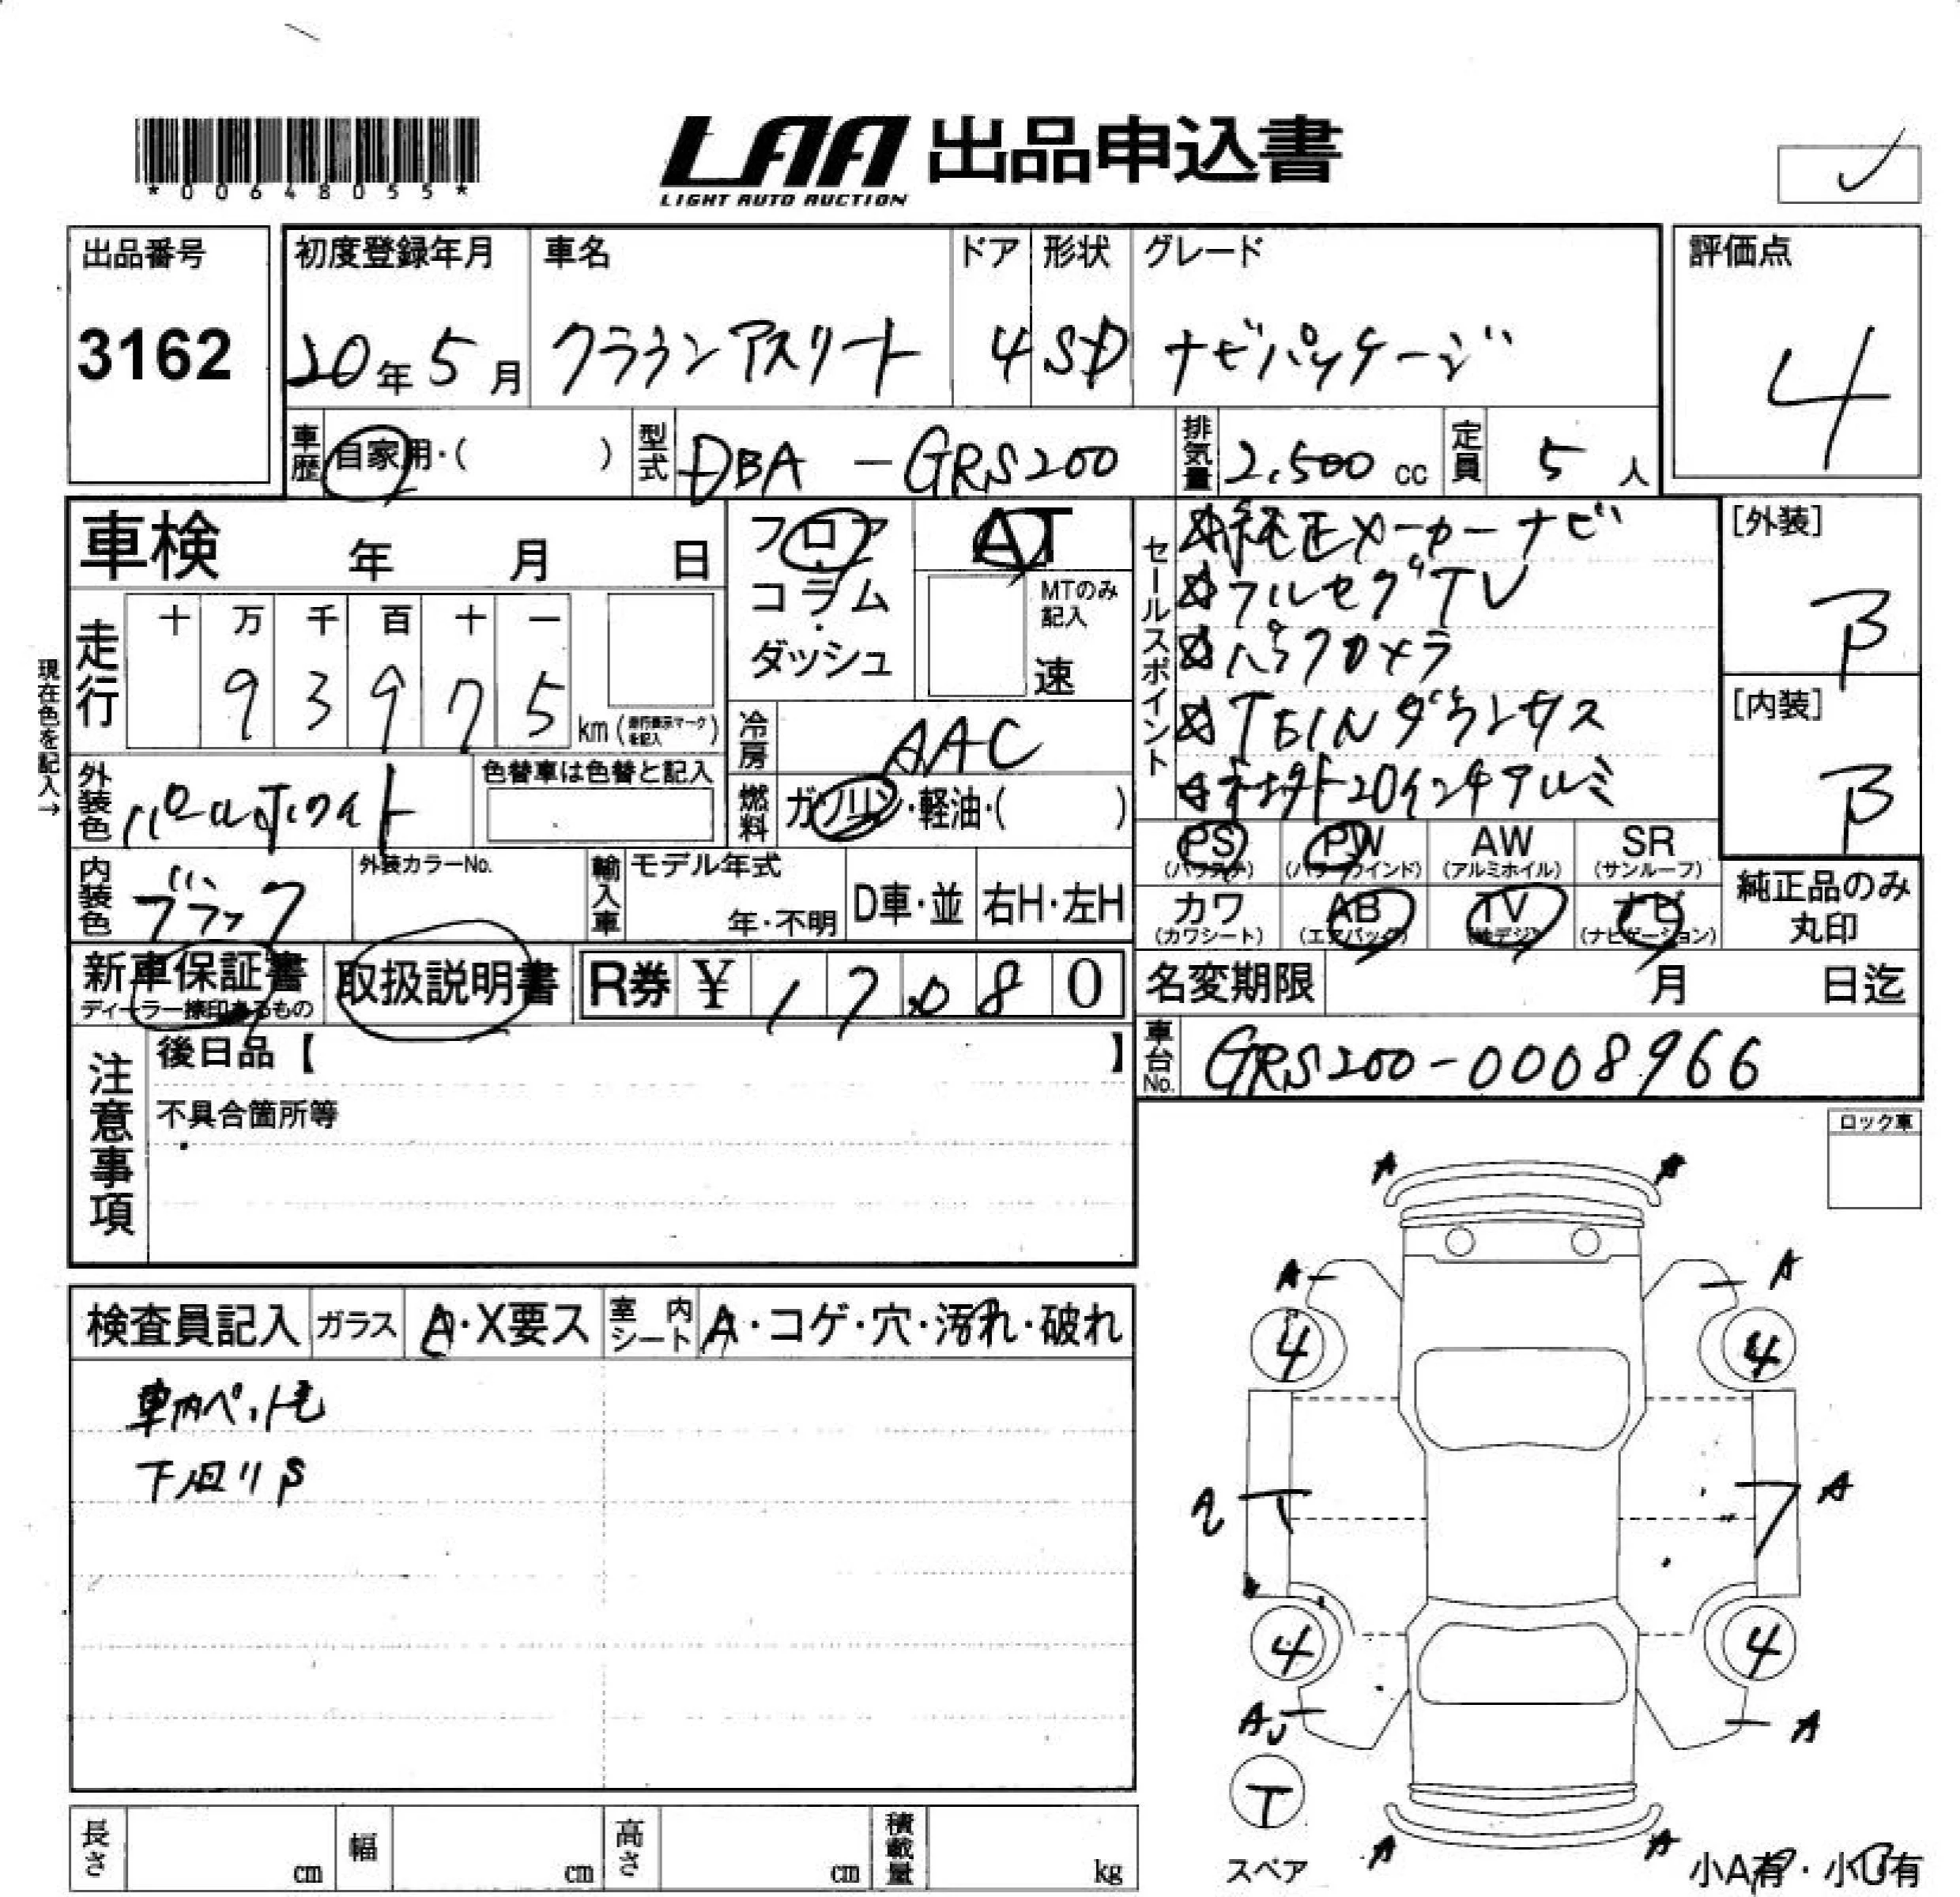 *00648055*
LAA 出品申込書
LIGHT AUTO AUCTION
出品番号
3162
初度登録年月
20年5月
車名
クラウンアスリート
ドア
4
形状
SD
グレード
ナビパッケージ
評価点
4
車歴
自家用・( )
型式
DBA-GRS200
排気量
2,500 cc
定員
5 人
車検 年 月 日
フロア
コラム
・
ダッシュ
AT
MTのみ
記入
速
セールスポイント
☆純正メーカーナビ
☆フルセグTV
☆バックカメラ
☆TEINダウンサス
☆社外20インチアルミ
[外装]
B
[内装]
B
現在色を記入→
走行
十 万 千 百 十 一
9 3 9 7 5
km (走行表示マークを記入)
冷房
AAC
外装色
パールホワイト
色替車は色替と記入
燃料
ガソリン・軽油・( )
PS
AW
SR
PW
(パワステ)
(パワーウインド)
(アルミホイル)
(サンルーフ)
内装色
ブラック
外装カラーNo.
輸入車
モデル年式
年・不明
D車・並
右H・左H
カワ
AB
TV
ナビ
(カワシート)
(エアバッグ)
(地デジ)
(ナビゲーション)
純正品のみ
丸印
新車保証書
ディーラー捺印あるもの
取扱説明書
R券 ¥ 17,080
名変期限 月 日迄
注意事項
後日品【 】
不具合箇所等
車台No.
GRS200-0008966
ロック車
検査員記入
ガラス
A・X要ス
室内シート
A・コゲ・穴・汚れ・破れ
車内ペット毛
下廻りS
A A
A A
4 4
A
4 4
A
T
A A
スペア
小A有・小U有
長さ cm
幅 cm
高さ cm
積載量 kg